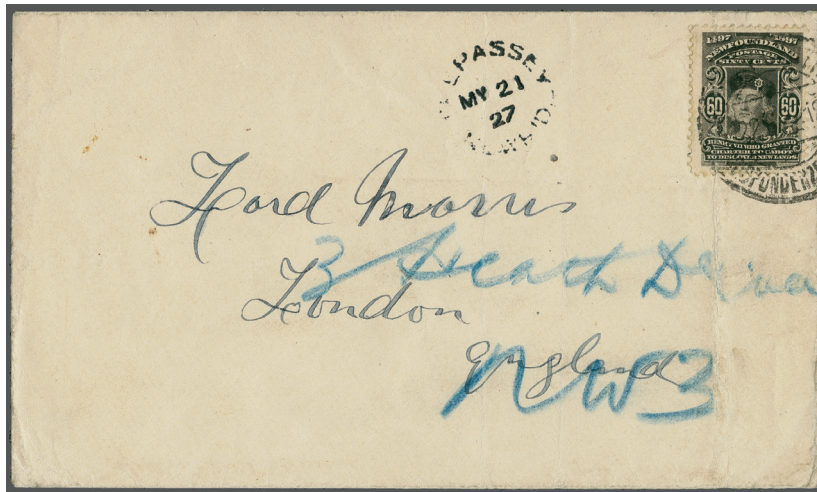 MY 21
27
1497 1897
NEWFOUNDLAND
POSTAGE
SIXTY CENTS
60 60
HENRY VII WHO GRANTED
CHARTER TO CABOT
TO DISCOVER NEW LANDS.
Lord Morris
3 Heath Drive
London
England
NW3